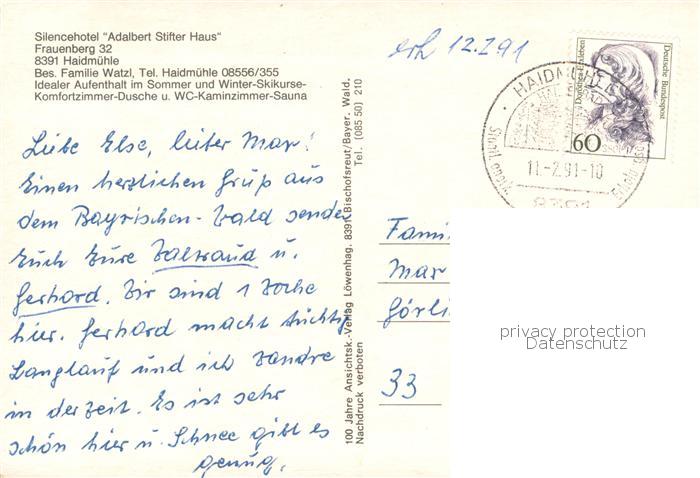 Silencehotel "Adalbert Stifter Haus"
Frauenberg 32
8391 Haidmühle
Bes. Familie Watzl, Tel. Haidmühle 08556/355
Idealer Aufenthalt im Sommer und Winter-Skikurse-
Komfortzimmer-Dusche u. WC-Kaminzimmer-Sauna
erh 12.2.91
Liebe Else, lieber Max!
Einen herzlichen Gruß aus
dem Bayrischen-Wald sendet
Euch Eure Waltraud u.
Gerhard. Wir sind 1 Woche
hier. Gerhard macht tüchtig
Langlauf und ich wandre
in der Zeit. Es ist sehr
schön hier u. Schnee gibt es
genug.
100 Jahre Ansichtsk.-Verlag Löwenhag, 8391 Bischofsreut/Bayer. Wald.
Tel. (085 50) 210
Nachdruck verboten
Deutsche Bundespost
60
HAIDMÜHLE
11.-2.91-10
8391
Fami
Max
Görli
33
privacy protection
Datenschutz